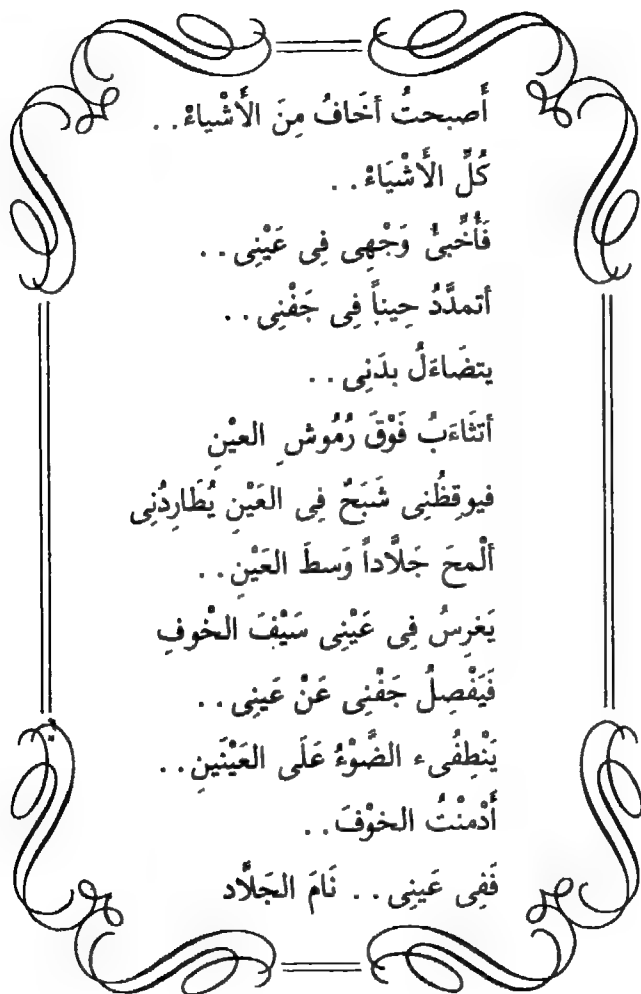 أَصبحتُ أخَافُ مِنَ الأَشْياءْ . .
كُلِّ الأَشْيَاءْ . .
فَأُخَبئُ وَجْهِى فِى عَيْنِى . .
أتمدَّدُ حِيناً فِى جَفْنِى . .
يتضَاءَلُ بدَنِى . .
أتثَاءَبُ فَوْقَ رُمُوشِ العيْنِ
فيوقِظُنِى شَبَحٌ فِى العَيْنِ يُطَارِدُنِى
ألْمحَ جَلَّاداً وَسطَ العَيْنِ . .
يَغرِسُ فِى عَيْنِى سَيْفَ الخْوفِ
فَيَفْصِلُ جَفْنِى عَنْ عَينِى . .
يَنْطِفُىء الضَّوْءُ عَلَى العَيْنَينِ . .
أَدْمنْتُ الخوْفَ . .
فَفِى عَينِى . . نَامَ الجَلَّاد